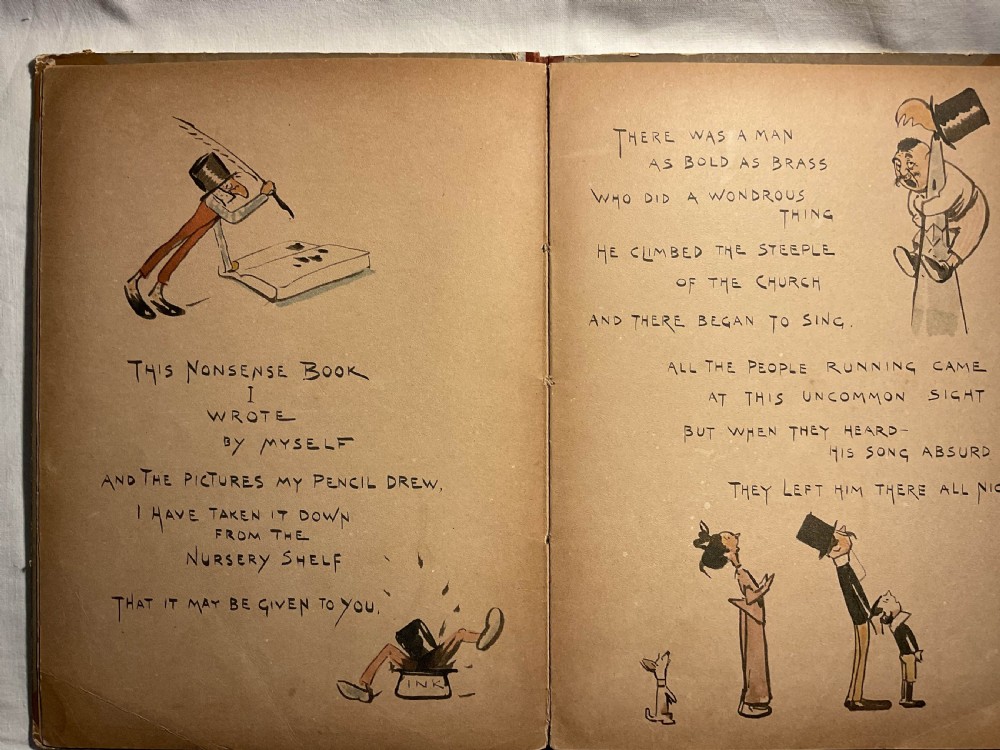 THIS NONSENSE BOOK
I
WROTE
BY MYSELF
AND THE PICTURES MY PENCIL DREW,
I HAVE TAKEN IT DOWN
FROM THE
NURSERY SHELF
THAT IT MAY BE GIVEN TO YOU.
INK
THERE WAS A MAN
AS BOLD AS BRASS
WHO DID A WONDROUS
THING
HE CLIMBED THE STEEPLE
OF THE CHURCH
AND THERE BEGAN TO SING.
ALL THE PEOPLE RUNNING CAME
AT THIS UNCOMMON SIGHT
BUT WHEN THEY HEARD-
HIS SONG ABSURD
THEY LEFT HIM THERE ALL